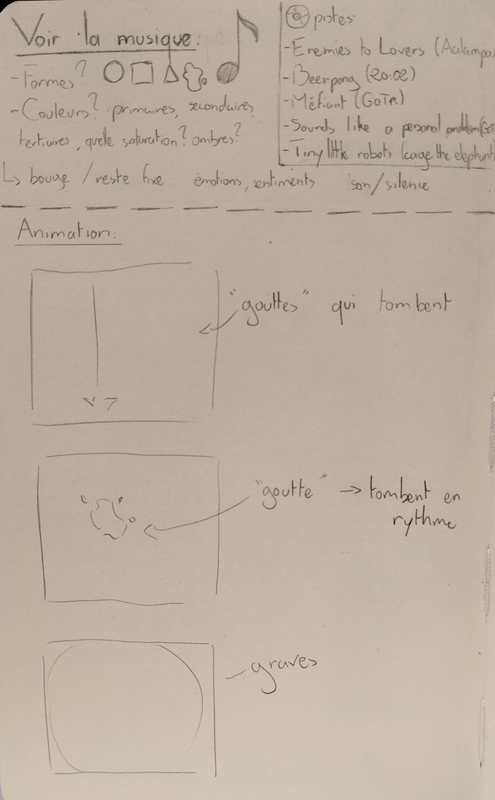 Voir la musique:
-Formes?
-Couleurs? primaires, secondaires,
tertiaires, quelle saturation? ombres?
↳ bouge / reste fixe émotions, sentiments son/silence
pistes:
-Enemies to Lovers (Aalampour
-Beerpong (20:02)
-Méfiant (GoTR)
-Sounds like a personal problem
-Tiny little robots (cage the elephant
Animation:
"gouttes" qui tombent
"goutte" → tombent en
rythme
graves